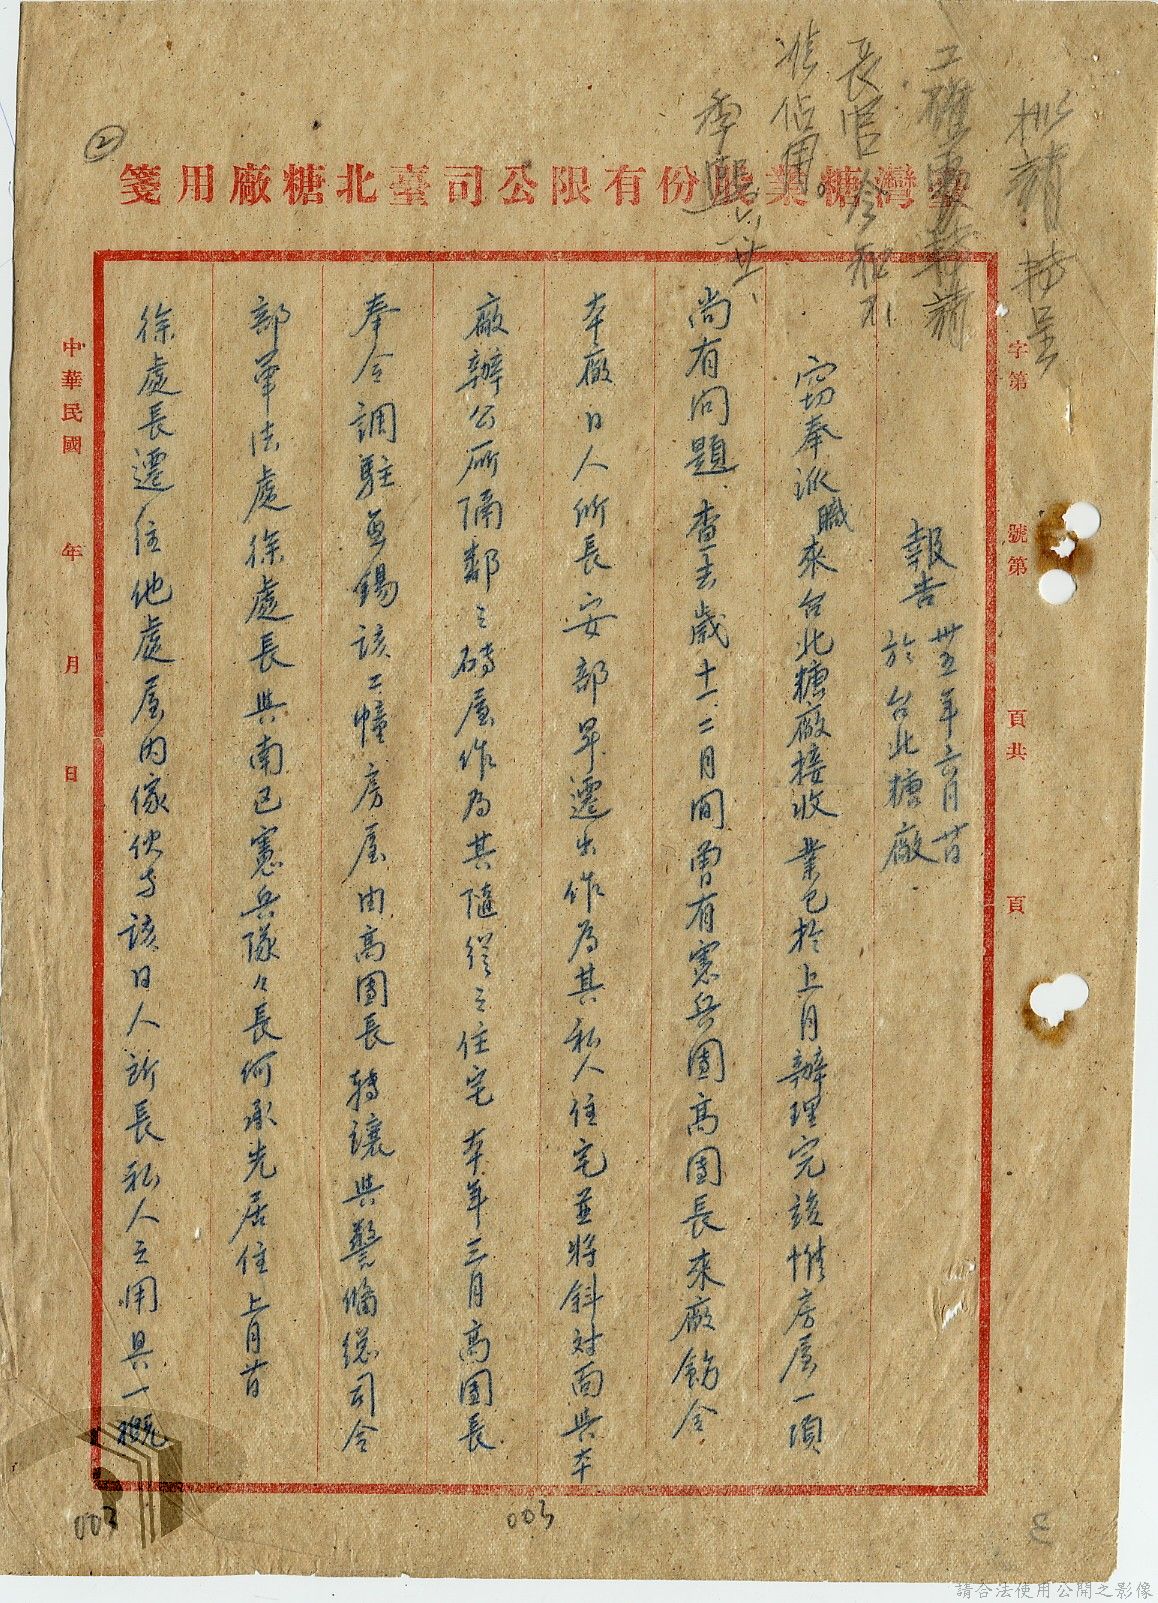 擬請轉呈
長官令知不
准佔用。
②
臺灣糖業股份有限公司臺北糖廠用箋
字第 號第 頁共 頁
報告 卅五年六月廿日
於台北糖廠
竊奉派職來台北糖廠接收業已於上月辦理完竣惟房屋一項
尚有問題查去歲十一、二月間曾有憲兵團高團長來廠飭令
本廠日人所長安部早遷出作為其私人住宅並將斜対面與本
廠辦公所隔鄰之磚屋作為其隨從之住宅本年三月高團長
奉令調駐無錫該二幢房屋由高團長轉讓與警備總司令
部軍法處徐處長與南巳憲兵隊々長何承先居住上月廿日
徐處長遷住他處屋內傢伙与該日人所長私人之用具一概
中華民國 年 月 日
003
003
3
請合法使用公開之影像